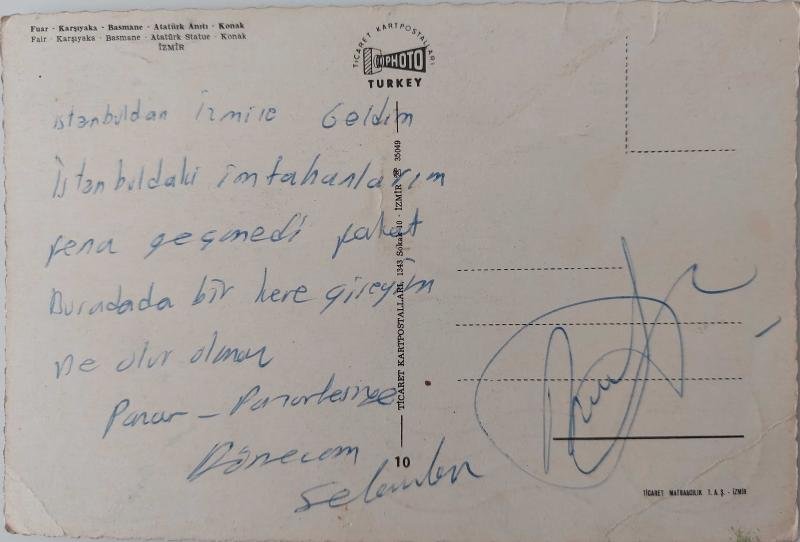 Fuar - Karşıyaka - Basmane - Atatürk Anıtı - Konak
Fair - Karşıyaka - Basmane - Atatürk Statue - Konak
İZMİR
TİCARET KARTPOSTALLARI
PHOTO
TURKEY
istanbuldan İzmire Geldim
İstanbuldaki imtahanlarım
fena geçmedi fakat
Buradada bir kere gireyim
ne olur olmaz
Pazar - Pazartesine
Dönecem
Selamlar
TİCARET KARTPOSTALLARI, 1343 Sokak 10 - İZMİR 35049
10
TİCARET MATBAACILIK T.A.Ş. - İZMİR